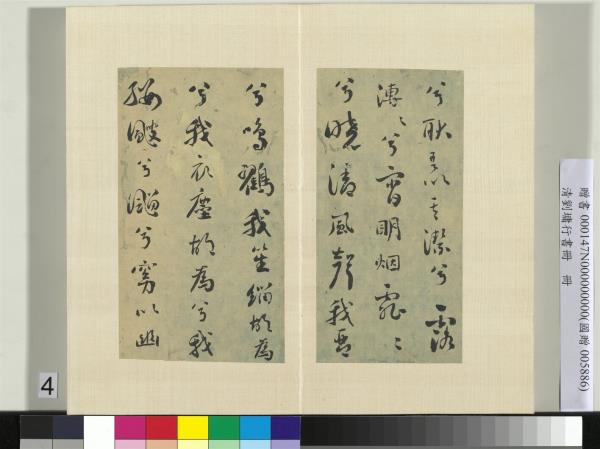 兮耿吾以其潔兮露
漙〻兮宵明烟霏〻
兮曉清風聲我
兮鳴鶴我笙緇胡為
兮我衣塵胡為兮我
纓颼兮颸兮窮以幽
4
贈書 000147N000000000(國贈 005886)
清劉墉行書冊 冊